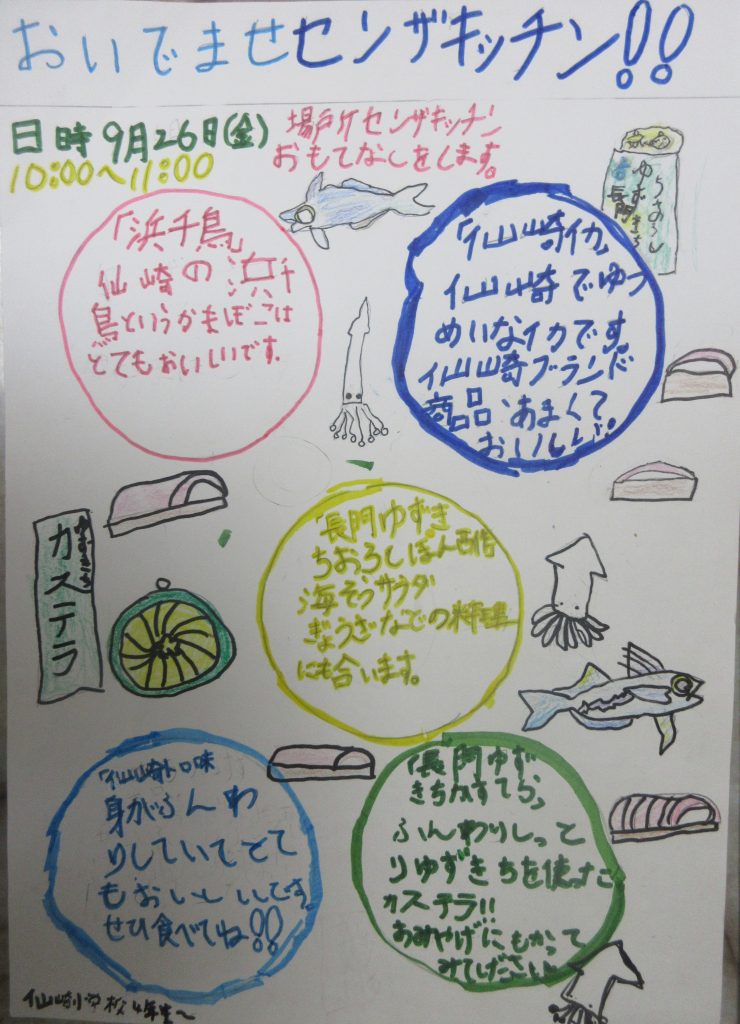 おいでませセンザキッチン!!
日時 9月26日(金)
10:00～11:00
場所 センザキッチン
おもてなしをします。
ゆずきち
長門
「浜千鳥」
仙崎の浜千
鳥というかまぼこは
とてもおいしいです。
「仙崎イカ」
仙崎でゆう
めいなイカです。
仙崎ブランド
商品、あまくて
おいしいよ。
カステラ
「長門ゆずき
ちおろしぽん酢
海そうサラダ
ぎょうざなどの料理
にも合います。
「仙崎トロ味
身がふんわ
りしていてとて
もおいしいです。
ぜひ食べてね!!
「長門ゆず
きちかすてら」
ふんわりしっと
りゆずきちを使った
カステラ!!
おみやげにもかって
みてください
仙崎小学校4年生～